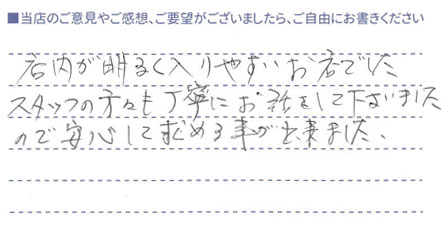 ■当店のご意見やご感想、ご要望がございましたら、ご自由にお書きください
店内が明るく入りやすいお店でした
スタッフの方々も丁寧にお話をして下さいました
ので安心して求める事が出来ました、